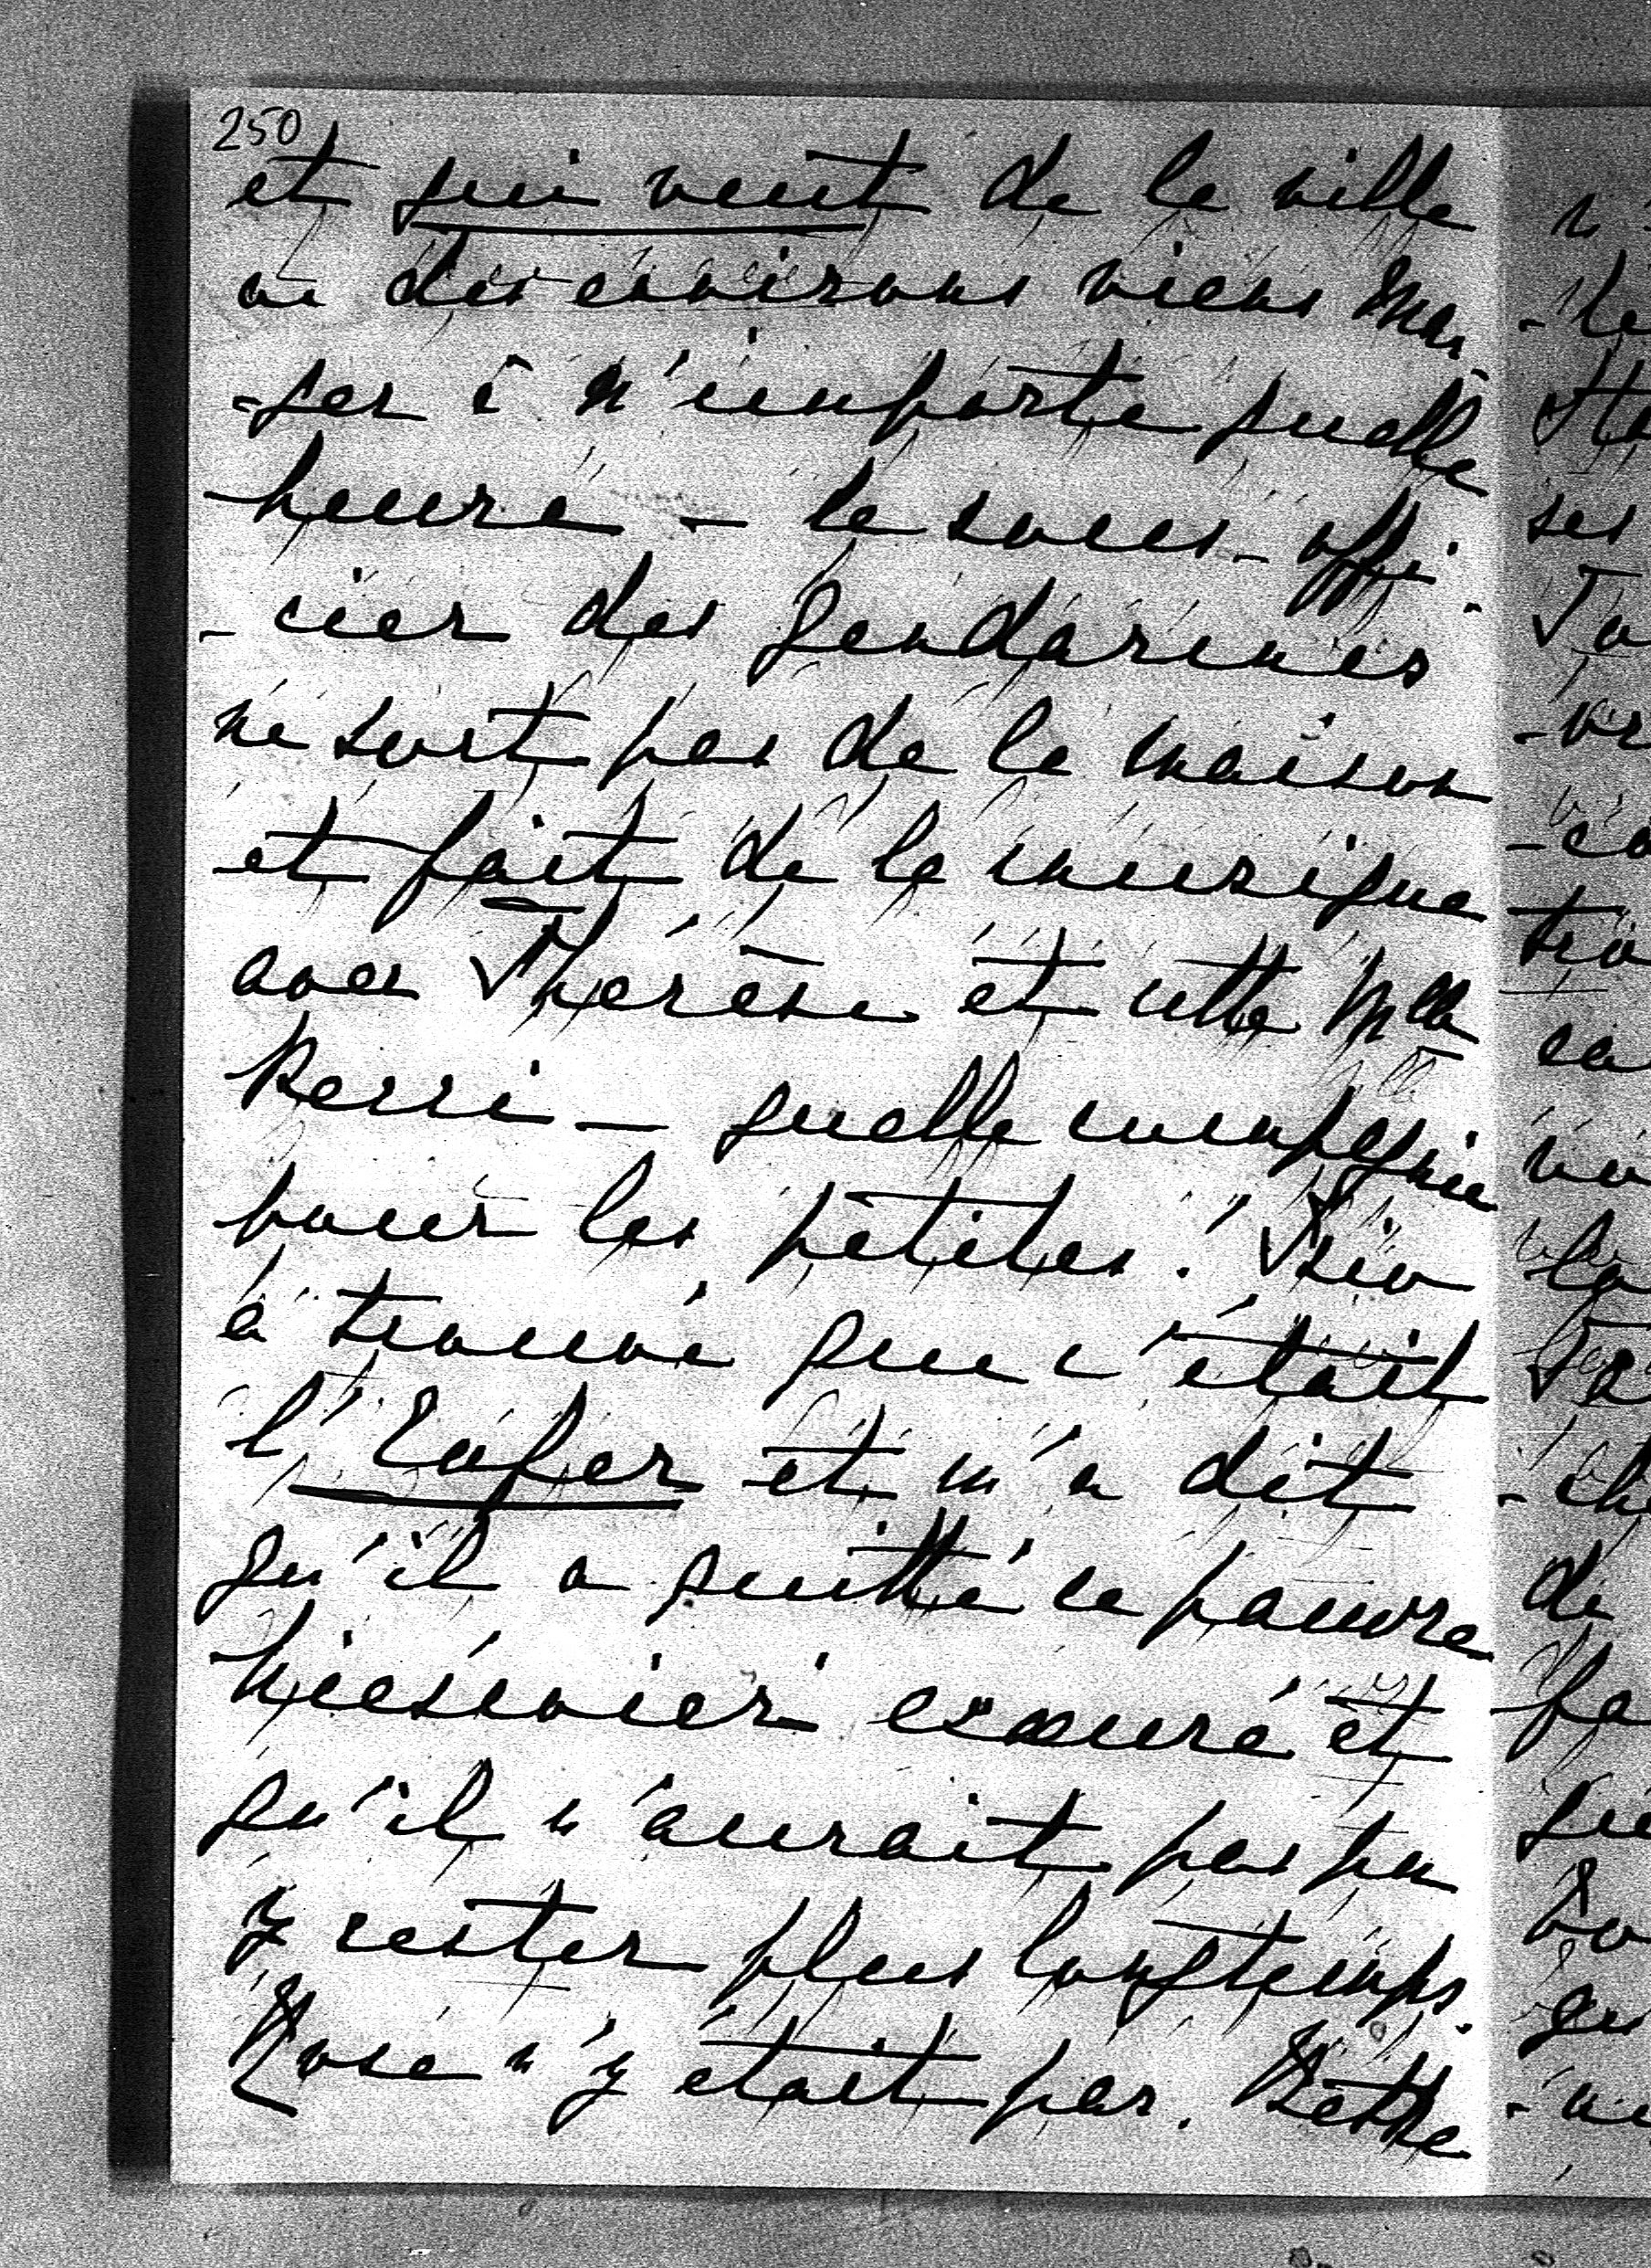 250
et qui veut de la ville
ou des environs viens man
-ger à n'importe quelle
heure - le sous-offi-
-cier des gendarmes
ne sort pas de la maison
et fait de la musique
avec Thérèse et cette Mlle
Perri - quelle compagnie
pour les petites! Tsio
a trouvé que c'était
l'Enfer et m'a dit
qu'il a quitté ce pauvre
écœuré et
qu'il n'aurait pas pu
y rester plus longtemps.
Rose n'y était pas. Bette